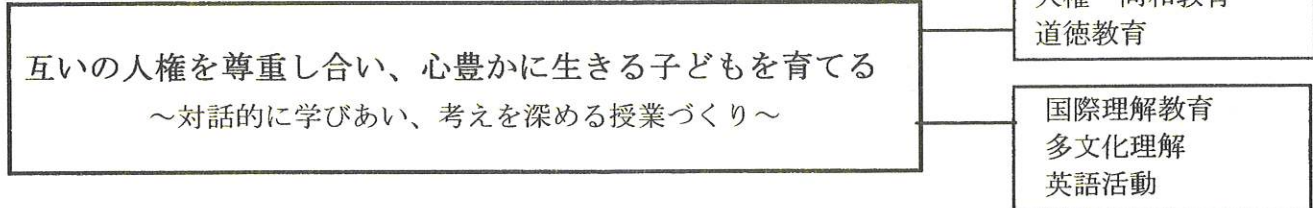 互いの人権を尊重し合い、心豊かに生きる子どもを育てる
～対話的に学びあい、考えを深める授業づくり～
道徳教育
国際理解教育
多文化理解
英語活動